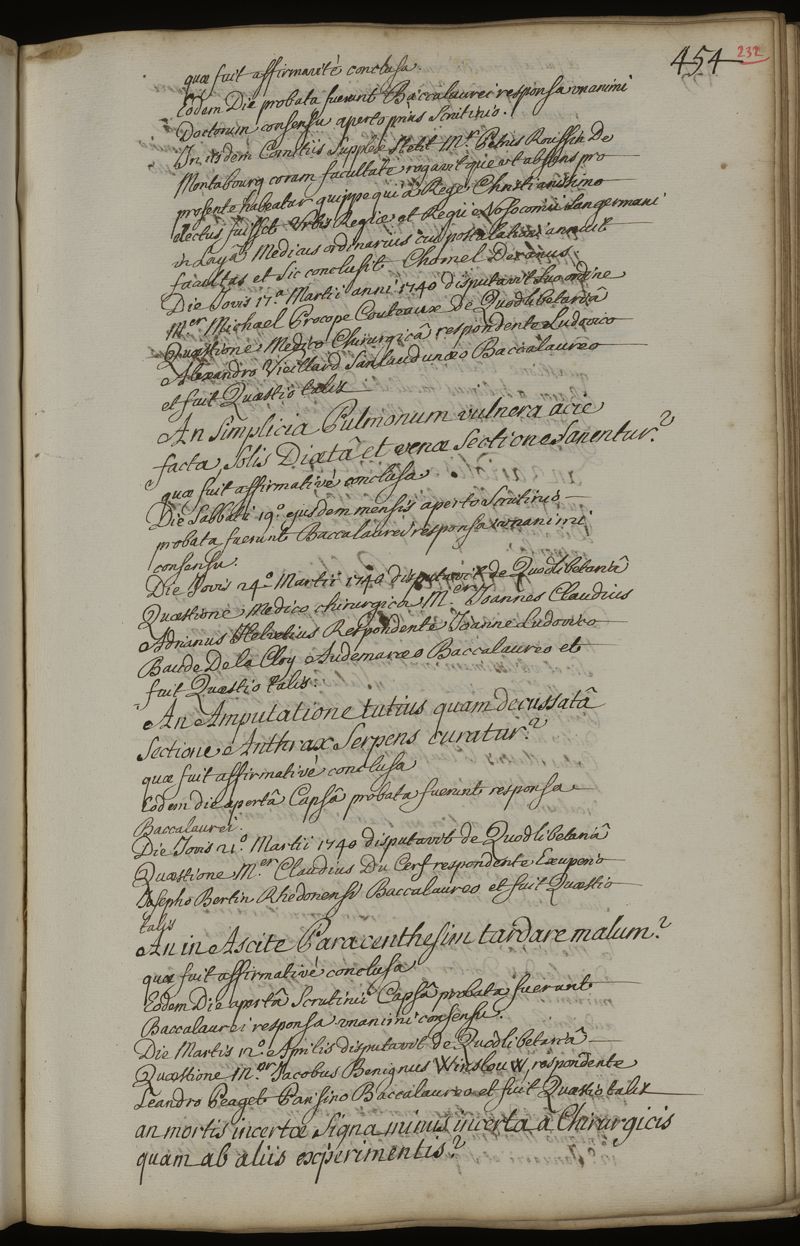 454 232
quæ fuit affirmativè conclusa.
Eodem Die probata fuerunt Baccalaurei responsa unanimi
Doctorum consensu aperto prius Scrutinio.
In iisdem Comitiis Supplex Stetit M.r Petrus Roussin De
Montabourg coram facultate rogavitque ut absens pro
præsente habeatur quippe qui à Rege Christianissimo
electus fuisset Urbis Regiæ et Regii Nosocomii Sangermani
in Layâ Medicus ordinarius cui postulationi annuit
facultas et Sic conclusit Chomel Decanus.
Die Jovis 17.a Martii anni 1740 disputavit Suo ordine
M.er Michael Procope Couteaux De Quodlibetariâ
Quæstione Medico Chirurgicâ respondente Ludovico
Alexandro Vieillard Sanlaudunæo Baccalaureo
et fuit Quæstio talis
An Simplicia Pulmonum vulnera acie
facta Solis Diætâ et venæ Sectione Sanentur?
quæ fuit affirmativè conclusa
Die Sabbati 19.o ejusdem mensis aperto Scrutinio
probata fuerunt Baccalaurei responsa unanimi
consensu.
Die Jovis 24.o Martii 1740 disputavit de Quodlibetariâ
Quæstione Medico chirurgica M.er Joannes Claudius
Adrianus Helvetius Respondente Joanne Ludovico
Baude De la Cloy Audemaræo Baccalaureo et
fuit Quæstio talis.
An Amputatione tutius quam decussatâ
Sectione Anthrax Serpens curatur?
quæ fuit affirmativè conclusa
Eodem die apertâ Capsâ probata fuerunt responsa
Baccalaurei.
Die Jovis 21.o Martii 1740 disputavit de Quodlibetariâ
Quæstione M.er Claudius Du Cerf respondente Exuperio
Josepho Bertin Rhedonensi Baccalaureo et fuit Quæstio
talis
An in Ascite Paracenthesim tardare malum?
quæ fuit affirmativè conclusa
Eodem Die apertâ Scrutinii Capsâ probata fuerunt
Baccalaurei responsa unanimi consensu.
Die Martis 12.o Aprilis disputavit de Quodlibetariâ
Quæstione M.er Jacobus Benignus Winslouw, respondente
Leandro Peaget Parisino Baccalaureo et fuit Quæstio talis
an mortis incertæ Signa minus incerta à Chirurgicis
quam ab aliis experimentis?